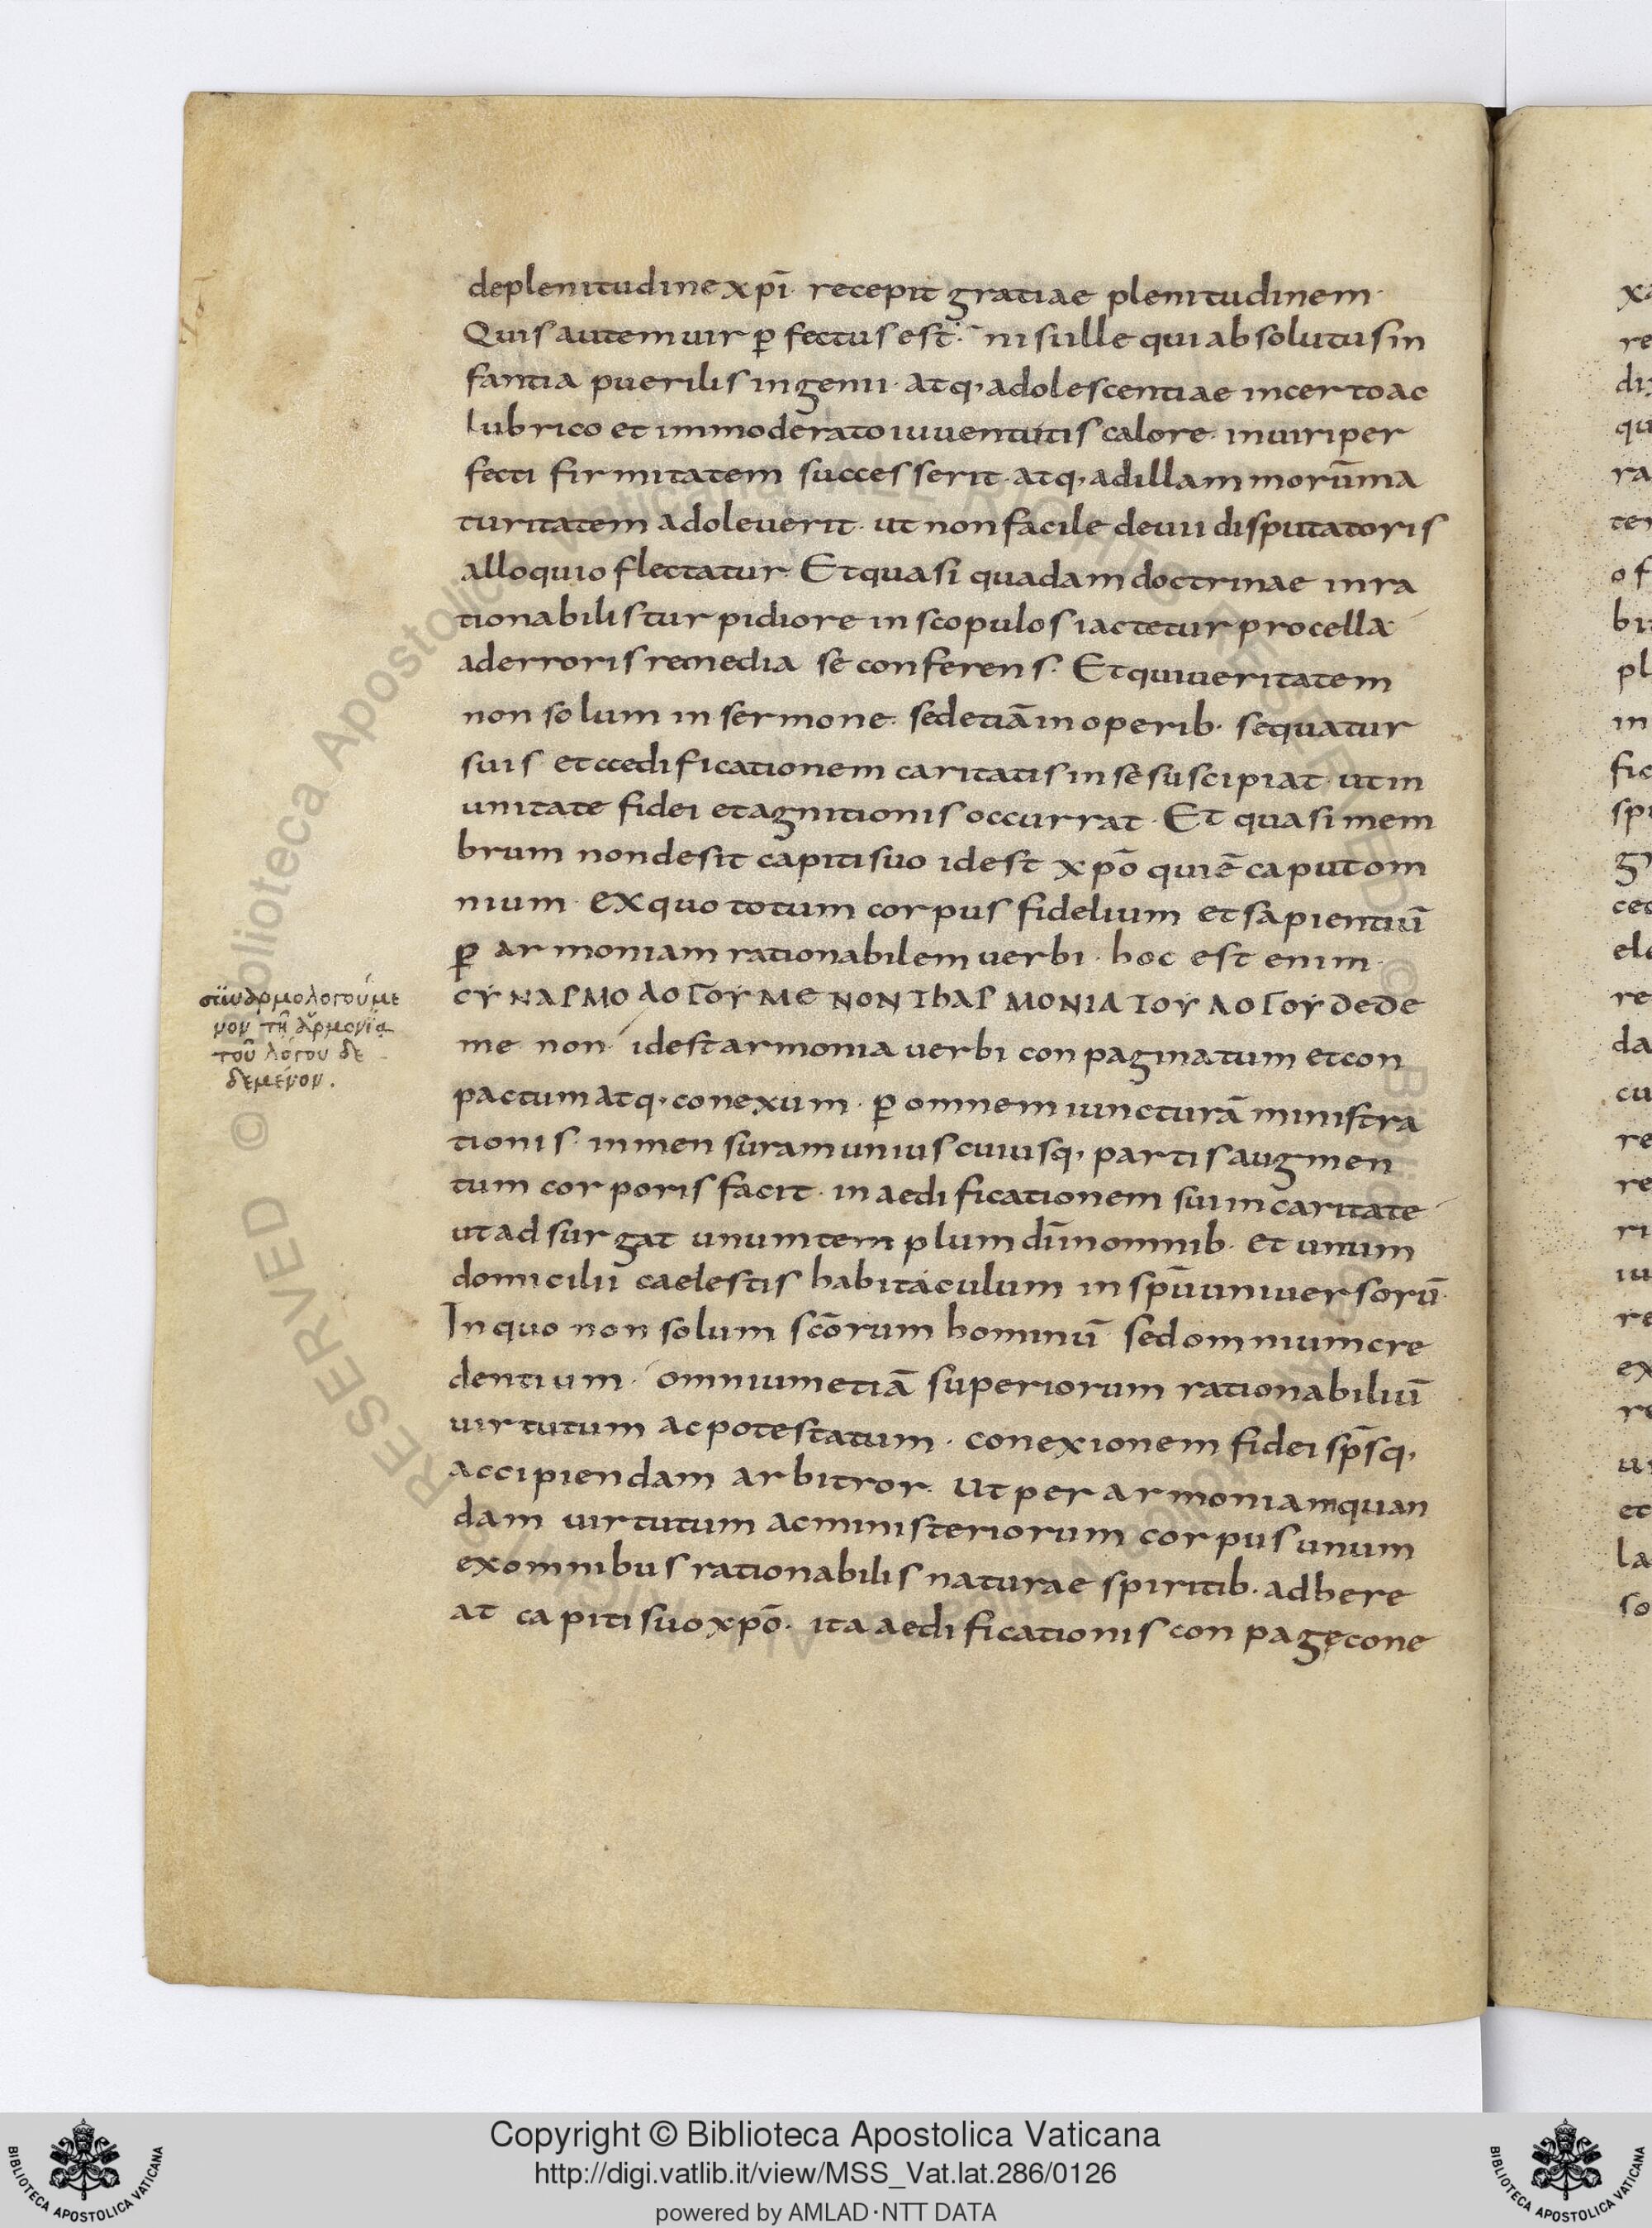 deplenitudine xp̄i· recepit gratiae plenitudinem·
Quis autem uir ꝑfectus est·̄ nisi ille qui absolutus in
fantia puerilis ingenii· atq· adolescentiae incerto ac
lubrico et immoderato iuuentutis calore· in uiri per
fecti firmitatem successerit· atq· ad illam morū ma
turitatem adoleuerit· ut non facile deuii disputatoris
alloquio flectatur· Et quasi quadam doctrinae inra
tionabilis turpidiore in scopulos iactetur procella·
ad erroris remedia se conferens· Et qui ueritatem
non solum in sermone· sed etiā in operib· sequatur
suis et ccedificationem caritatis in se suscipiat· ut in
unitate fidei et agnitionis occurrat· Et quasi mem
brum non desit capiti suo idest xp̄o qui ē caput om
nium· ex quo totum corpus fidelium et sapientiū
ꝑ armoniam rationabilem uerbi· hoc est enim·
CYNAPMOΛOΓOYMENON THAPMONIA TOY ΛOΓOY dede
me non· idest armonia uerbi conpaginatum et con
pactum atq· conexum· ꝑ omnem iuncturā ministra
tionis· in mensuram unius cuiusq· partis augmen
tum corporis facit· in aedificationem sui in caritate
ut adsurgat unum templum dī in omnib· et unum
domicilii caelestis habitaculum in spū uniuersorū·
In quo non solum scōrum hominū sed omnium cre
dentium· omnium etiā superiorum rationabiliū
uirtutum ac potestatum· conexionem fidei sp̄sq·
accipiendam arbitror· Ut per armoniam quan
dam uirtutum ac ministeriorum corpus unum
ex omnibus rationabilis naturae spiritib· adhere
at capiti suo xp̄o· ita aedificationis conpagę cone
σϋναρμολογούμε
νον τῆ ἁρμονΐα
τοῦ λόγου δε
δεμένον.
Copyright © Biblioteca Apostolica Vaticana
http://digi.vatlib.it/view/MSS_Vat.lat.286/0126
powered by AMLAD·NTT DATA
BIBLIOTECA APOSTOLICA VATICANA
BIBLIOTECA APOSTOLICA VATICANA